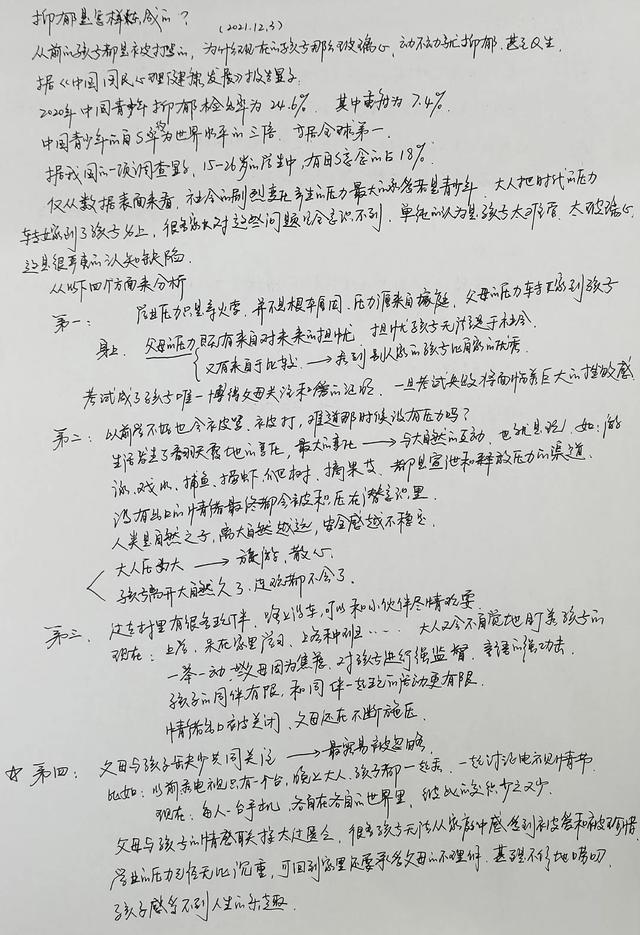 抑郁是怎样形成的？
(2021.12.3)
从前的孩子都是被打骂的，为什么现在的孩子那么玻璃心，动不动就抑郁，甚至自S。
据《中国国民心理健康发展》报告显示：
2020年中国青少年抑郁检出率为24.6%。其中重郁为7.4%。
中国青少年的自S率将为世界水平的三倍，高居全球第一。
据我国的一项调查显示，15-26岁的学生中，有自S意念的占18%。
仅从数据表面来看，社会的剧烈变化产生的压力最大的承受者是青少年，大人把时代的压力
转嫁到了孩子身上，很多家长对这些问题完全意识不到，单纯的认为是孩子太难管，太玻璃心，
这是很严重的认知缺陷。
从以下四个方面来分析
第一：学业压力只是导火索，并不是根本原因，压力源来自家庭，父母的压力转嫁到孩子
身上。父母的压力既有来自对未来的担忧，担忧孩子无法适于社会。
又有来自于比较。→ 看到别人家的孩子比自家的优秀。
考试成了孩子唯一博得父母关注和爱的证明，一旦考试失败将面临着巨大的挫败感
第二：以前学不好也会被骂、被打，难道那时候没有压力吗？
生活发生了翻天覆地的变化，最大的变化 → 与大自然的互动，也就是玩！如：游
泳、戏水、捕鱼、捞虾、爬树、摘果子，都是宣泄和释放压力的渠道。
没有出口的情绪最终都会被积压在潜意识里。
人类是自然之子，离大自然越远，安全感越不稳定。
大人压力大 → 旅游，散心。
孩子离开大自然久了，连玩都不会了。
第三、过去村里有很多玩伴，路上没车，可以和小伙伴尽情玩耍
现在：上学、呆在家里学习、上各种班……大人又会不自觉地盯着孩子的
一举一动，些父母因为焦虑，对孩子进行强监督，言语的强攻击。
孩子的同伴有限，和同伴一起玩的活动更有限。
情绪出口被关闭，父母还在不断施压。
☆ 第四：父母与孩子缺少共同关注 → 最容易被忽略
比如：以前看电视只有一个台，晚上大人、孩子都一起看，一起讨论电视情节
现在：每人一台手机，各自在各自的世界里，彼此的交流少之又少。
父母与孩子的情感联接太过匮乏，很多孩子无法从家庭中感受到被爱和被同情
学业的压力已经无比沉重，可回到家里还要承受父母的不理解，甚至不停地唠叨，
孩子感受不到人生的乐趣。